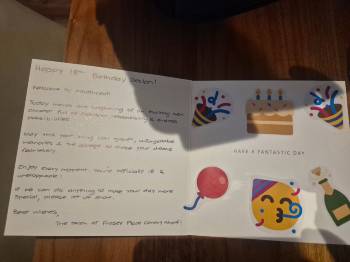 Happy 18th Birthday Declan!
Welcome to Adulthood!
Today marks the beginning of an exciting new
chapter full of freedom, & endless
possibilities.
May this year bring you great, unforgettable
memories & the courage to chase your dreams
fearlessly.
Enjoy every moment, you're officially 18 &
unstoppable!
If we can do anything to make your day more
special, please let us know.
Best wishes,
The team at Fraser Place Canary Wharf!
HAVE A FANTASTIC DAY